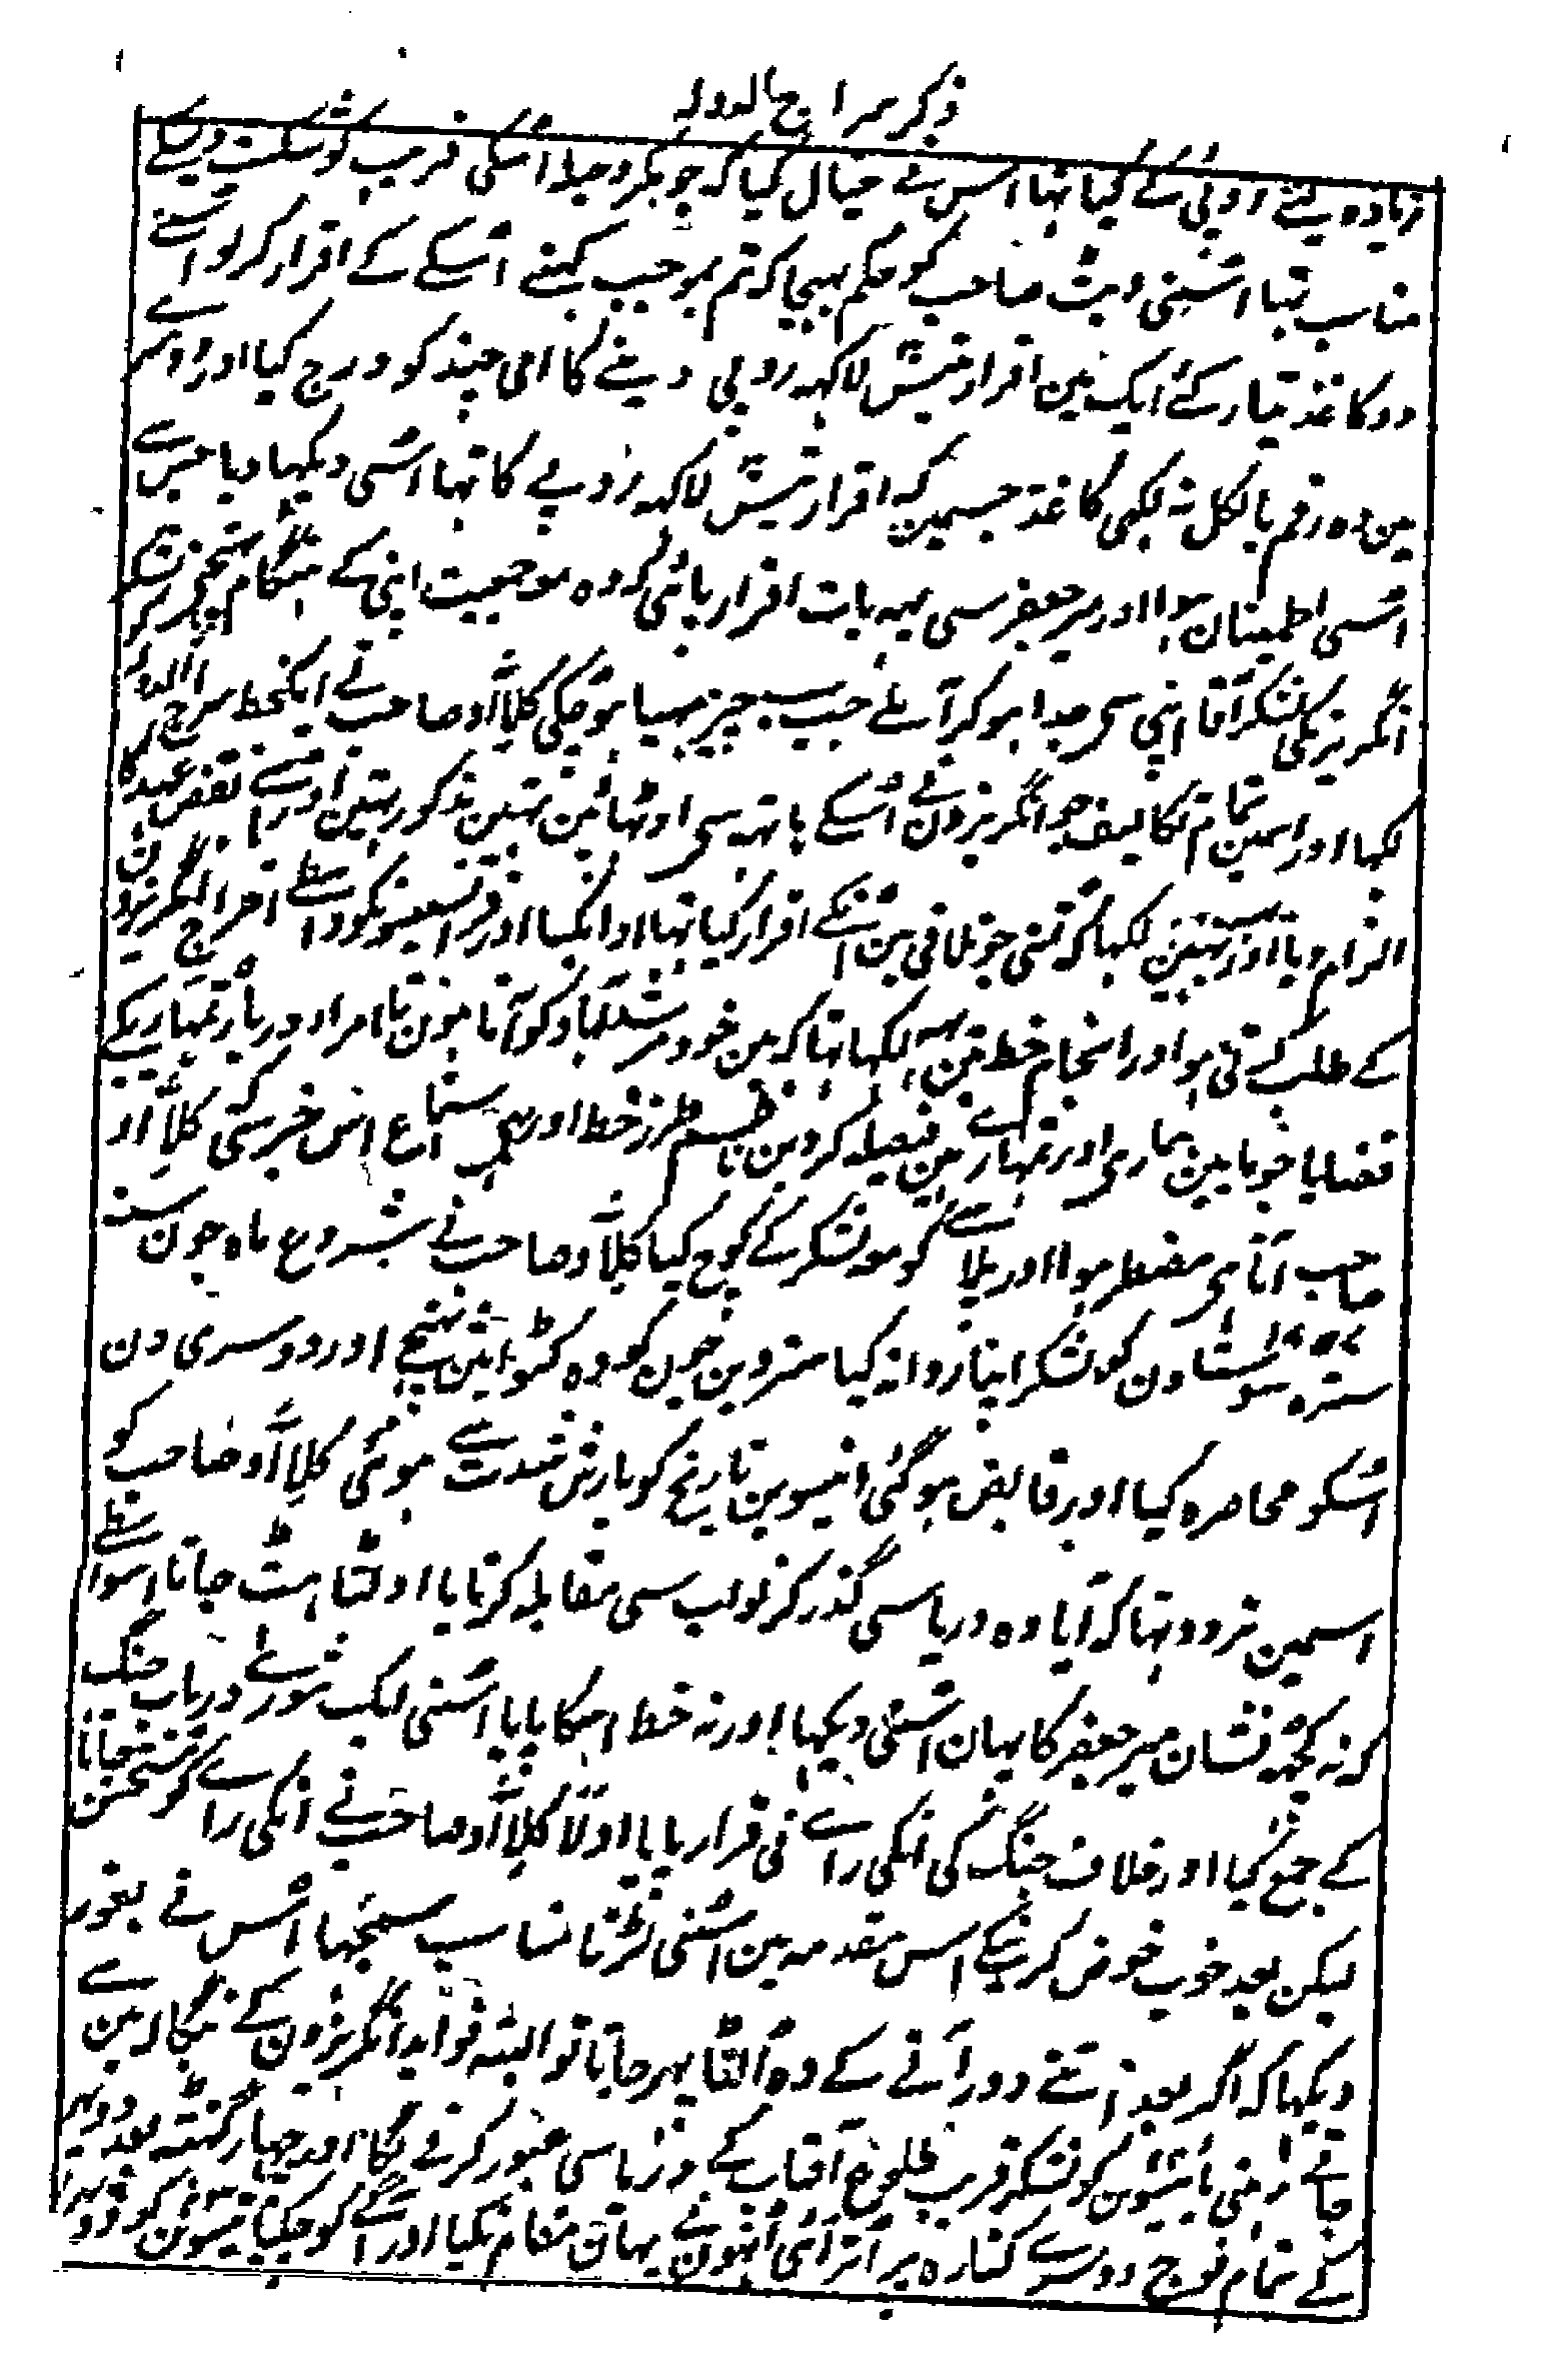 ذکر سراج الدولہ
زیادہ لینے روپئی کے کیا تہا اس نے خیال کیا کہ جو مکر و حیلہ اُسکی فریب کو شکست دیسکے
مناسب تہا اُسنی وٹ صاحب کو حکم بہیجا کہ تم بموجب کہنے اُسکے کے اقرار کر لو اُسنے
دو کاغذ تیار کئے ایک مین اقرار تیس لاکہہ روپی دینے کا امی چند کو درج کیا اور دوسرے
مین وہ رقم بالکل نہ لکہی کاغذ جسمین کہ اقرار تیس لاکہہ روپے کا تہا اُسی دیکہا دیا جس سے
اُسی اطمینان ہوا اور میر جعفر سی یہہ بات اقرار پائی کہ وہ مع جمعیت اپنی کے ہنگام پہنچنی لشکر
انگریز کی لشکر آقا اپنی سی جدا ہو کر آملے جب سب چیز مہیا ہو چکی کلاًاَو صاحب نے ایکخط سراج الدولہ کو
لکہا اور اسمین تمام تکالیف جو انگریزون نے اُسکے ہاتہہ سی اوٹہائین تہین مذکور تہین اور اُسے نقض عہد کا
الزام دیا اور یہین لکہا کہ تمنی جو تلافی مین اُسکے اقرار کیا تہا ادا نکیا اور فرانسیسونکو واسطے اخراج انگریزون
کے طلب کرتی ہو اور انجام خط مین یہہ لکہا تہا کہ مین خود مرشدآباد کو آتا ہون تا امراء دربار تمہاریکے
قضایا جو مابین ہماری اور تمہارے ہین فیصلہ کر دین ناظم طرز خط اور بہی سماع اس خبر سی کہ کلاًاَو
صاحب آتا ہی مضطر ہوا اور پلاسے کو مع لشکر کے کوچ کیا کلاًاَو صاحب نے شروع ماہ جون سنہ ۱۷۵۷
سترہ سو ستاون کو لشکر اپنا روانہ کیا ستروین جون کو وہ کٹوا مین پہنچے اور دوسری دن
اُسکو محاصرہ کیا اور قابض ہو گئی انیسوین تاریخ کو بارش شدت سے ہوئی کلاًاَو صاحب کو
اسمین تردد تہا کہ آیا وہ دریا سی گذر کر نواب سی مقابلہ کرتا یا اولٹا ہٹ جاتا اسواسطے
کہ نہ کچہہ نشان میر جعفر کا یہان اُسنی دیکہا اور نہ خط اسکا پایا اُسنی ایک شورٰے درباب جنگ
کے جمع کیا اور خلاف جنگ کی انکی راے نی قرار پایا اولًا کلاًاَو صاحب نے انکی راے کو مستحسن جانا
لیکن بعد خوب خوض کرنیکے اس مقدمہ مین اُسنی لڑنا مناسب سمجہا اُس نے بغور
دیکہا کہ اگر بعد اتنے دور آنے کے وہ اُلٹا پہر جاتا تو البتہ فواید انگریزون کے بنگالہ مین سے
جاتے رہتی بائیسوین کو لشکر قریب طلوع آفتاب کے دریا سی عبور کرنے لگا اور چہار گہنٹہ بعد دوپہر
کے تمام فوج دوسرے کنارہ پر اُتر آئی اُنہون نے یہان مقام نکیا اور آگے کو چلے